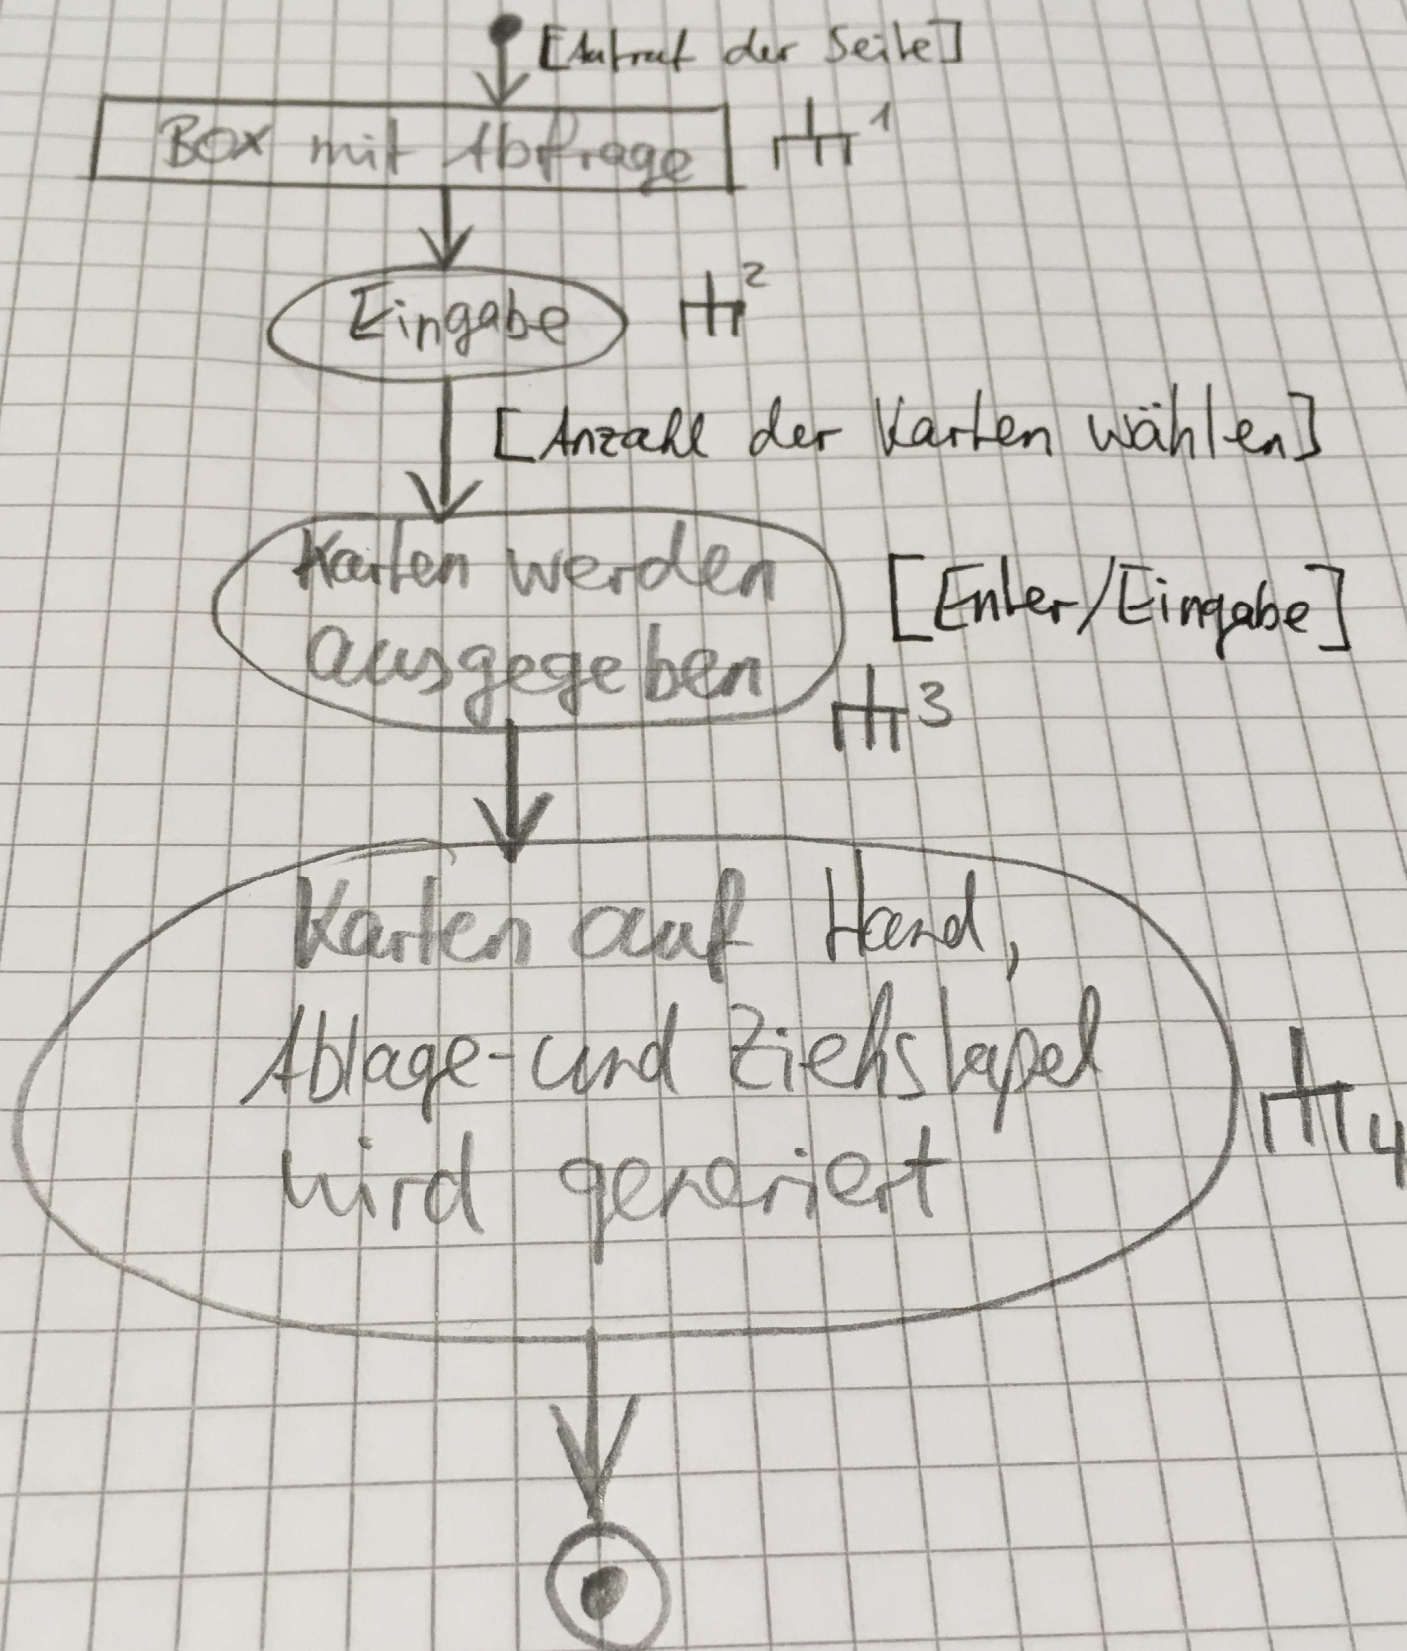 [Aufruf der Seite]
Box mit Abfrage
1
Eingabe
2
[Anzahl der Karten wählen]
Karten werden
ausgegeben
[Enter/Eingabe]
3
Karten auf Hand,
Ablage-und Ziehstapel
wird generiert
4